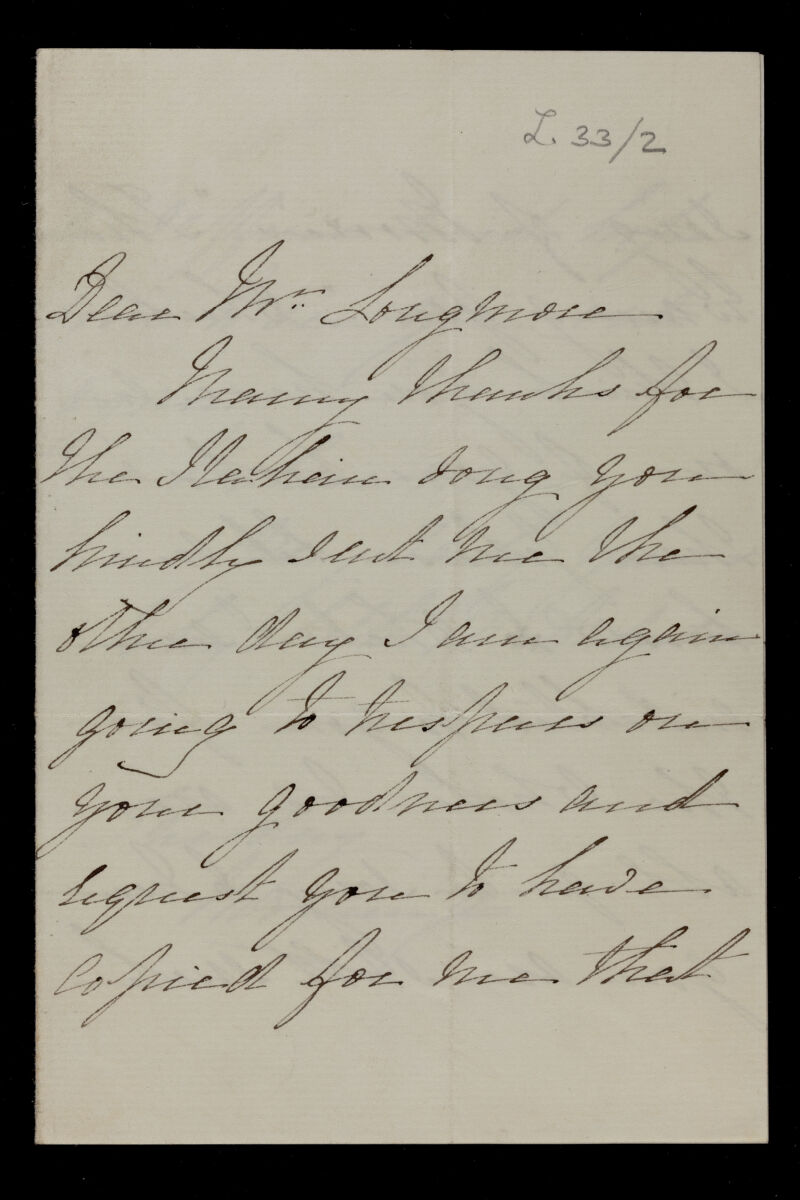 L. 33/2
Dear Mr. Longmore
Many thanks for
the Italian song you
kindly sent me the
other day I am again
going to trespass on
your goodness and
request you to have
copied for me that